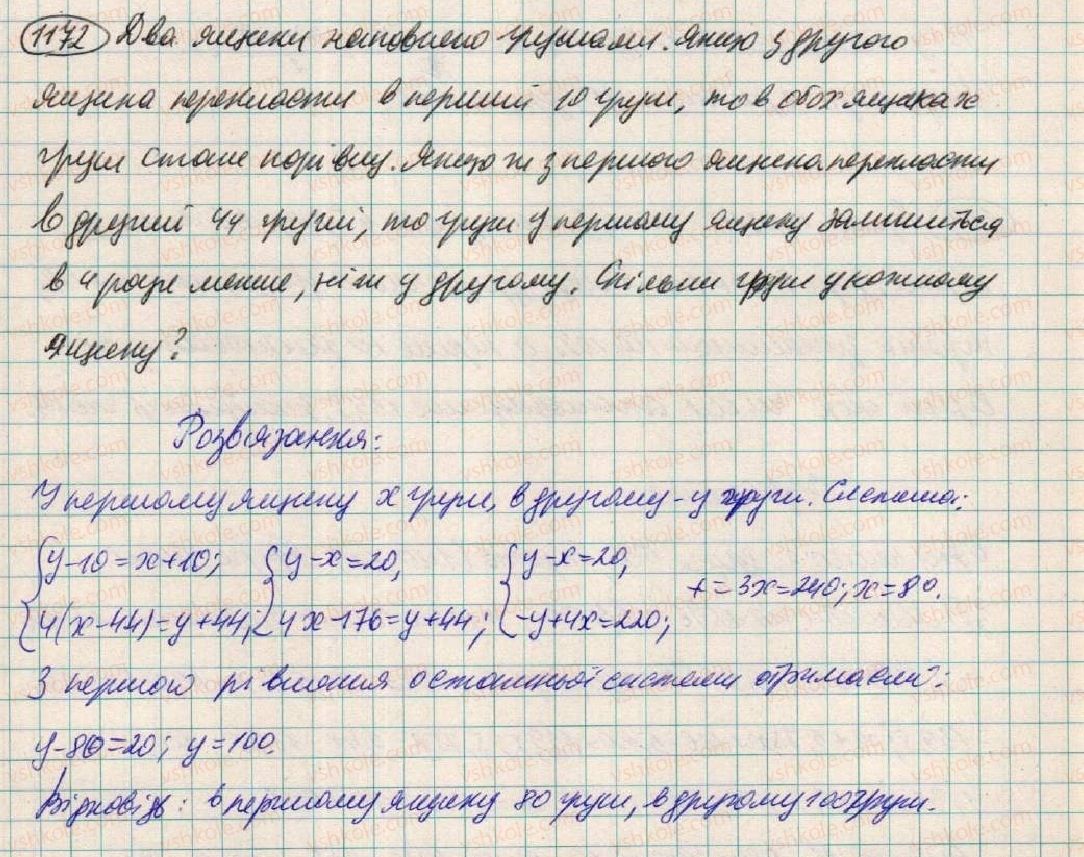 1172 Два ящики наповнено грушами. Якщо з другого
ящика перекласти в перший 10 груш, то в обох ящиках
груш стане порівну. Якщо ж з першого ящика перекласти
в другий 44 груші, то груш у першому ящику залишиться
в 4 рази менше, ніж у другому. Скільки груш у кожному
ящику?
Розв'язання:
У першому ящику x груш, в другому - y груш. Система:
{y-10=x+10; {y-x=20, {y-x=20, +=3x=240; x=80.
{4(x-44)=y+44; {4x-176=y+44; {-y+4x=220;
З першого рівняння останньої системи отримаємо:
y-80=20; y=100.
Відповідь: в першому ящику 80 груш, в другому 100 груш.